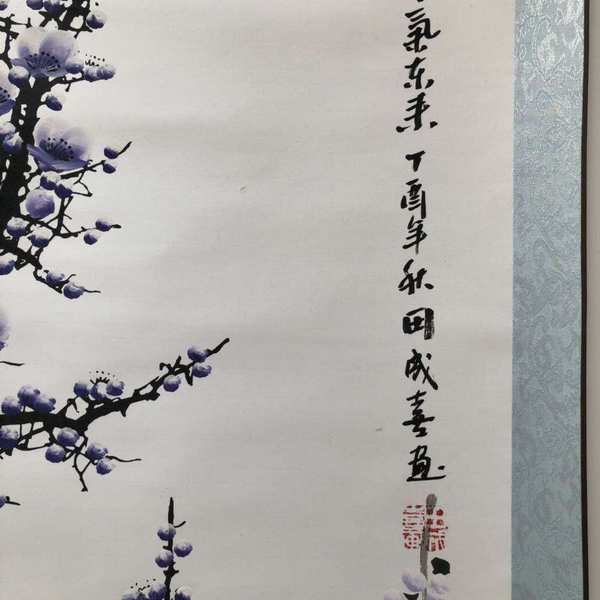 氣东来丁酉年秋田成喜画